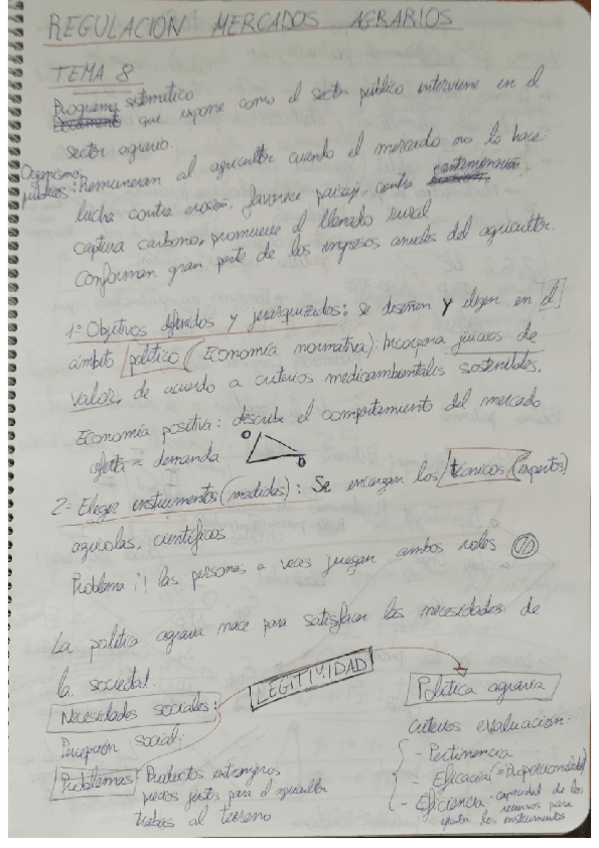 REGULACIÓN MERCADOS AGRARIOS
TEMA 8
Programa sistematico
Documento que expone como el sector público interviene en el
sector agrario
Organismos
públicos: Remuneran al agricultor cuando el mercado no lo hace:
lucha contra erosión, favorece paisaje, contra contaminación,
captura carbono, promueve el llenado rural
Conforman gran parte de los ingresos anuales del agricultor.
1º Objetivos definidos y jerarquizados: se diseñan y eligen en el
ámbito político (Economía normativa): Incorpora juicios de
valor, de acuerdo a criterios medioambientales sostenibles.
Economía positiva: describe el comportamiento del mercado
oferta = demanda O D
2- Elegir instrumentos (medidas): Se encargan los técnicos (expertos)
agrícolas, científicos
Problema ¡! las personas a veces juegan ambos roles
La política agraria nace para satisfacer las necesidades de
la sociedad.
LEGITIMIDAD
Necesidades sociales:
Percepción social:
Problemas: Productos extranjeros
precios justos para el agricultor
trabas al terreno
Política agraria
Criterios evaluación:
- Pertinencia
- Eficacia = Proporcionalidad
- Eficiencia: capacidad de los
recursos para
los instrumentos